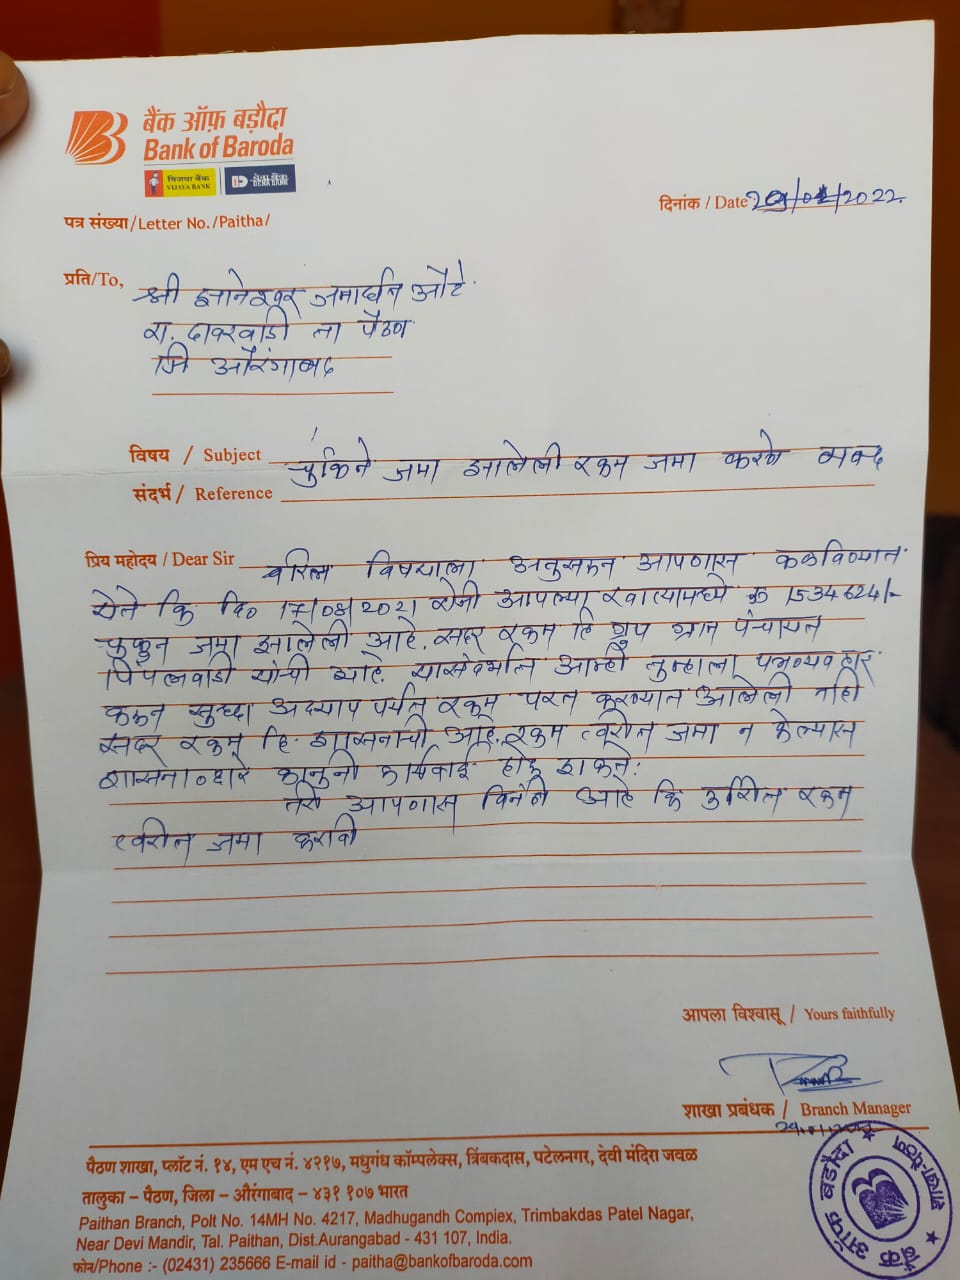 बैंक ऑफ़ बड़ौदा
Bank of Baroda
विजया बैंक
VIJAYA BANK
देना बैंक
DENA BANK
पत्र संख्या/Letter No./Paitha/
दिनांक / Date /2022
प्रति/To,
श्री ज्ञानेश्वर जनार्धन औटे
रा. दावरवाडी ता पैठण
जि औरंगाबाद
विषय / Subject चुकिने जमा झालेली रकम जमा करणे बाबद
संदर्भ / Reference
प्रिय महोदय / Dear Sir वरिल विषयाला अनुसरुन आपणास कळविण्यात
येते कि दि० 17/08/2021 रोजी आपल्या खात्यामध्ये रु 1534624/-
चुकुन जमा झालेली आहे. सदर रकम हि ग्रुप ग्राम पंचायत
पिंपळवाडी यांची आहे. यासंदर्भात आम्ही तुम्हाला पत्रव्यवहार
करुन सुध्दा अद्याप पर्यंत रकम परत करण्यात आलेली नाही
सदर रकम हि शासनाची आहे. रकम त्वरीत जमा न केल्यास
शासनाव्दारे कानुनी कार्यवाई होऊ शकते.
तरी आपणास विनंती आहे कि उर्वरित रकम
त्वरीत जमा करावी
आपला विश्वासू / Yours faithfully
शाखा प्रबंधक / Branch Manager
पैठण शाखा, प्लॉट नं. १४, एम एच नं. ४२१७, मधुगंध कॉम्पलेक्स, त्रिंबकदास, पटेलनगर, देवी मंदिरा जवळ
तालुका – पैठण, जिला – औरंगाबाद – ४३१ १०७ भारत
Paithan Branch, Polt No. 14MH No. 4217, Madhugandh Compiex, Trimbakdas Patel Nagar,
Near Devi Mandir, Tal. Paithan, Dist.Aurangabad - 431 107, India.
फोन/Phone :- (02431) 235666 E-mail id - paitha@bankofbaroda.com
बैंक ऑफ बडौदा
शाखा-पैठण